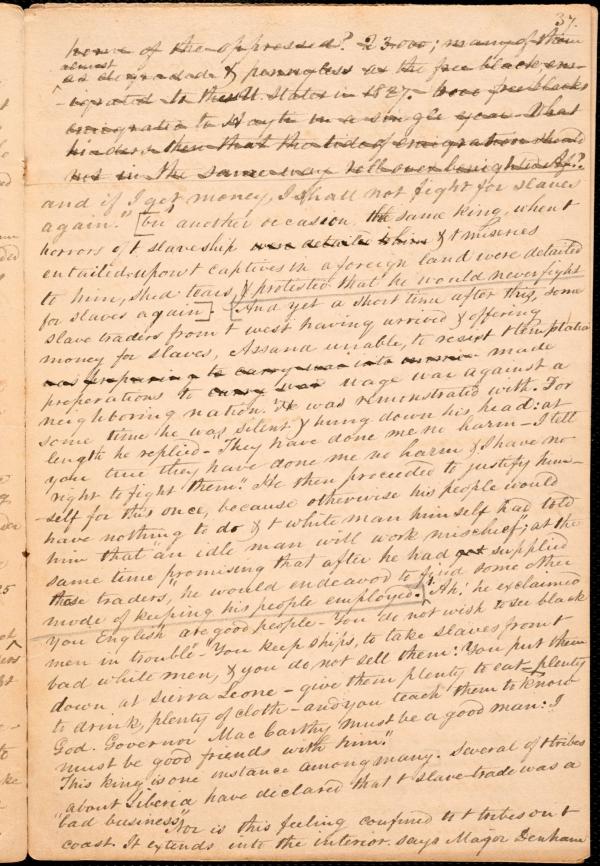 37.
home of the oppressed? 23.000; many of them
almost
as degraded & pennyless as the free blacks em-
-igrated to the U. States in 1827. 6000 free blacks
emigrated to Hayti in a single year. What
hinders then that the tide of emigration should
not in the same way roll over benighted Af.?
and if I get money, I shall not fight for slaves
again." [On another occasion the same king, when t
horrors of t slaveship were detailed to him & t miseries
entailed upon t captives in a foreign land were detailed
to him, shed tears, & protested that he would never fight
for slaves again] [And yet a short time after this, some
slave traders from t west having arrived & offering
money for slaves, Assana unable, to resist t temptation
was preparing to carry war into made
preparations to carry war wage war against a
neighboring nation. He was remonstrated with. For
some time he was silent & hung down his head: at
length he replied - "They have done me no harm - I tell
you true they have done me no harm & I have no
right to fight them." He then proceeded to justify him-
-self for this once, because otherwise his people would
have nothing to do & t white man himself had told
him that "an idle man will work mischief"; at the
same time promising that after he had got supplied
those traders, he would endeavor to find some other
mode of keeping his people employed. "Ah,' he exclaimed
You English are good people - You do not wish to see black
men in trouble - You keep ships, to take slaves from t
bad white men, & you do not sell them: You put them
down at Sierra Leone - give them plenty to eat - plenty
to drink, plenty of cloth - and you teach them to know
God. Governor MacCarthy must be a good man: I
must be good friends with him."
This king is one instance among many. Several of t tribes
about Liberia have declared that t slave-trade was a
"bad business" Nor is this feeling confined to t tribes on t
coast. It extends into the interior. says Major Denham